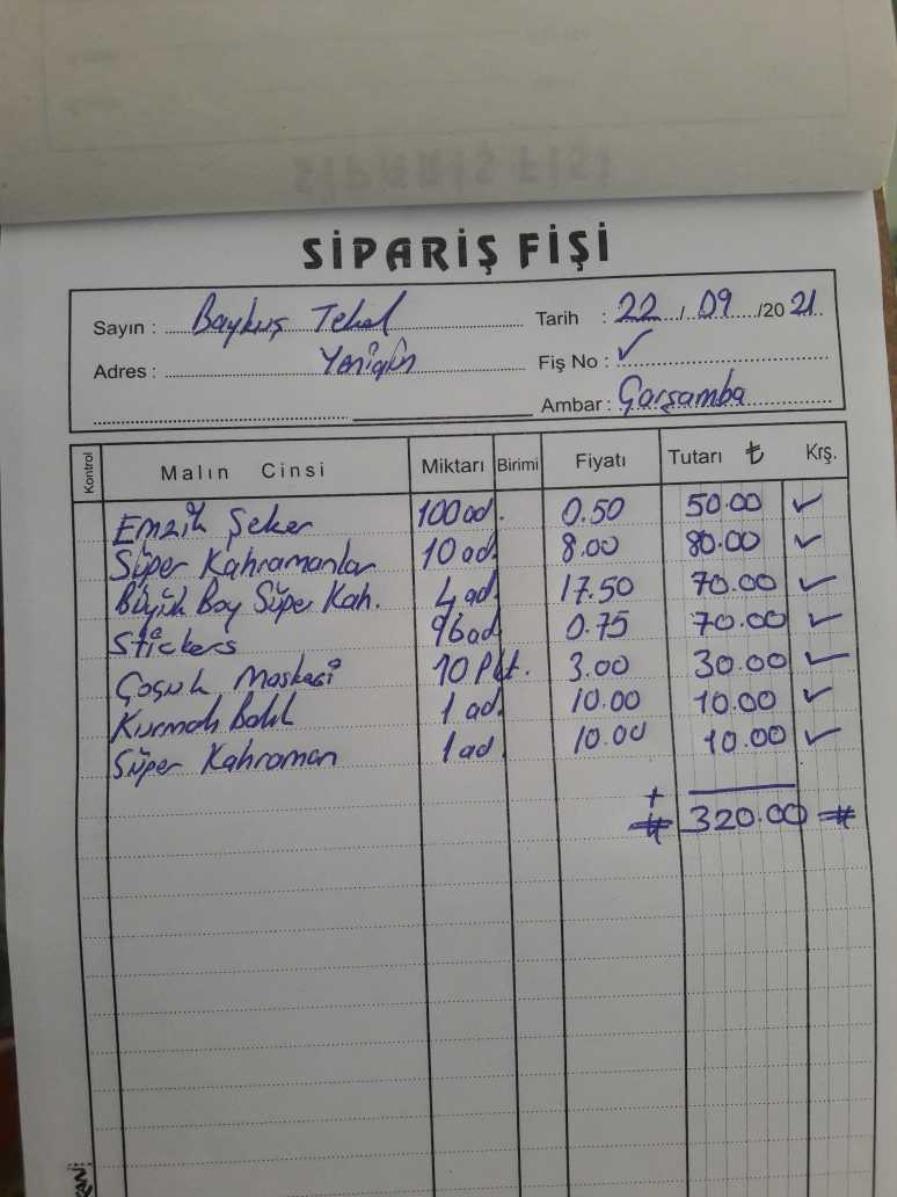 SİPARİŞ FİŞİ
Sayın : Baykuş Tekel
Tarih : 22 / 09 /20 21
Adres : Yenigün
Fiş No : ✓
Ambar : Çarşamba
Kontrol Malın Cinsi Miktarı Birimi Fiyatı Tutarı ₺ Krş.
Emzik Şeker 100 ad. 0.50 50.00 ✓
Süper Kahramanlar 10 ad. 8.00 80.00 ✓
Büyük Boy Süper Kah. 4 ad. 17.50 70.00 ✓
Stickers 96 ad 0.75 70.00 ✓
Çoşuk Maskesi 10 Pkt. 3.00 30.00 ✓
Kurmalı Balık 1 ad. 10.00 10.00 ✓
Süper Kahraman 1 ad. 10.00 10.00 ✓
+
# 320.00 #